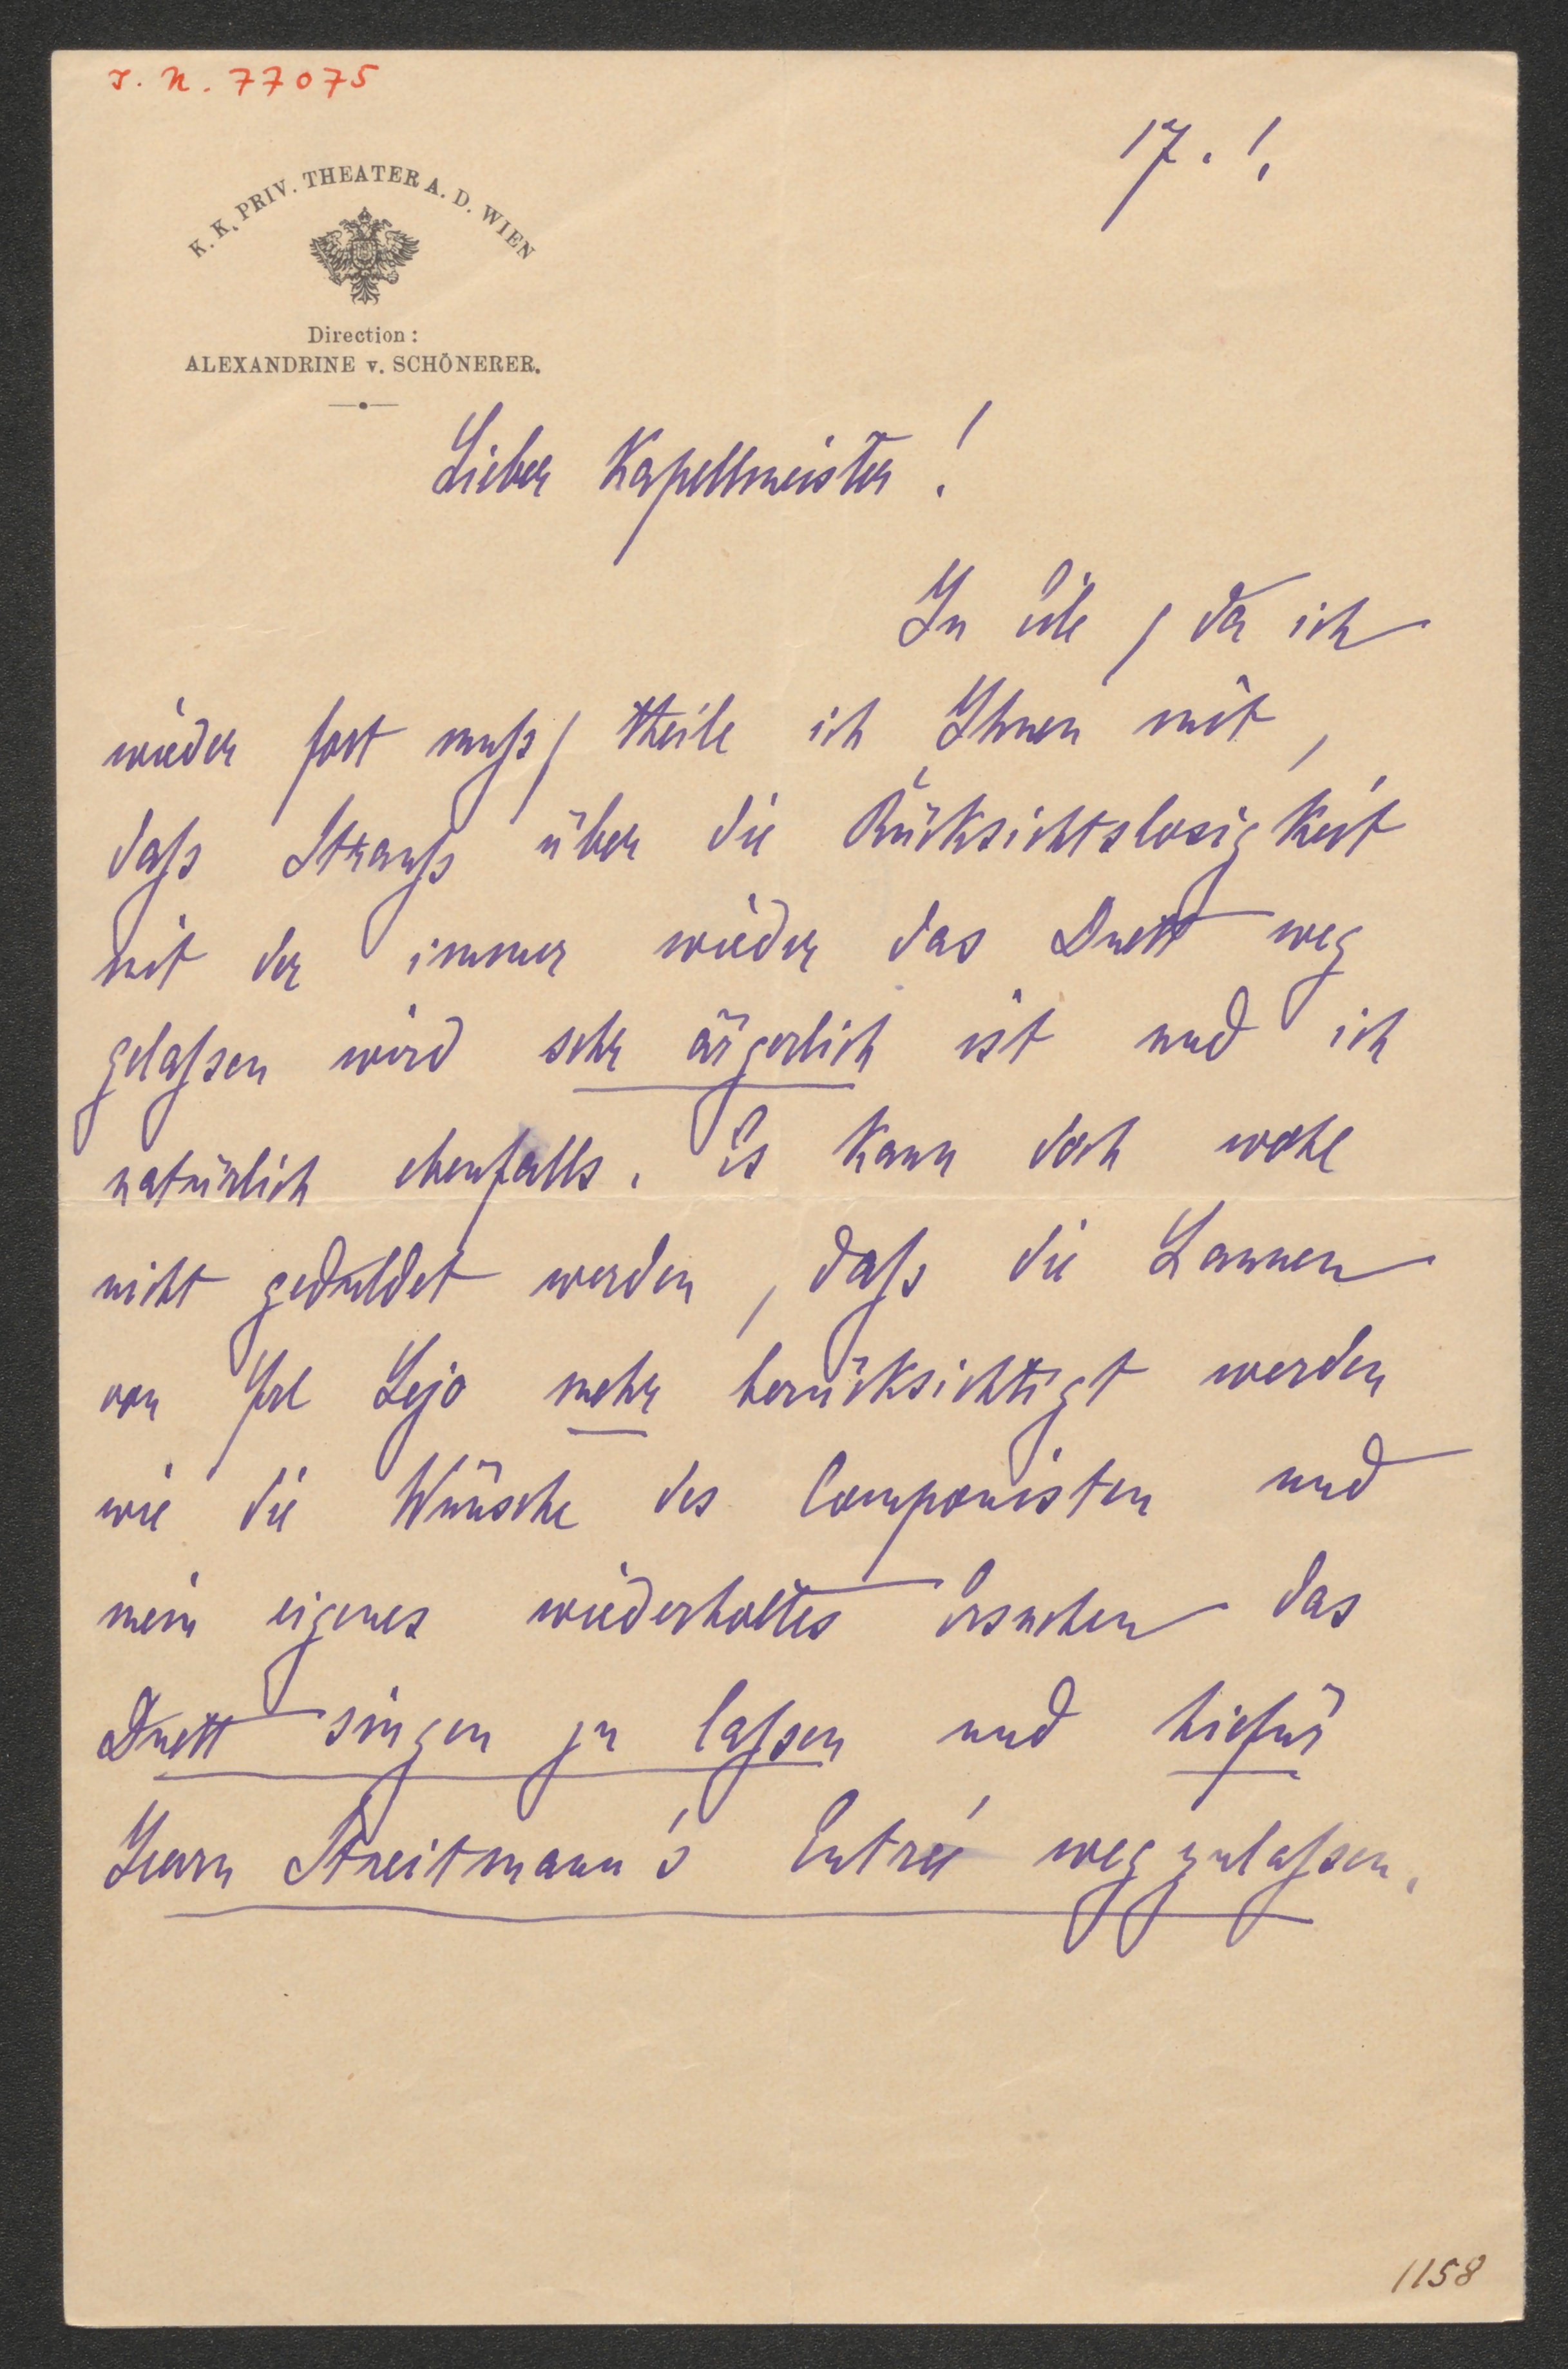 I. N. 77075
17. 1.
K. K. PRIV. THEATER A. D. WIEN
Direction:
ALEXANDRINE v. SCHÖNERER.
Lieber Kapellmeister!
In Eile / da ich
wieder fort muß / theile ich Ihnen mit,
daß Strauß über die Rücksichtslosigkeit
mit der immer wieder das Duett weg
gelaßen wird sehr ärgerlich ist und ich
natürlich ebenfalls. Es kann doch wohl
nicht geduldet werden, daß die Launen
von Frl Lejo mehr berücksichtigt werden
wie die Wünsche des Componisten und
mein eigenes wiederholtes Ersuchen das
Duett singen zu laßen und hiefür
Herrn Streitmann's Entreé wegzulaßen.
1158